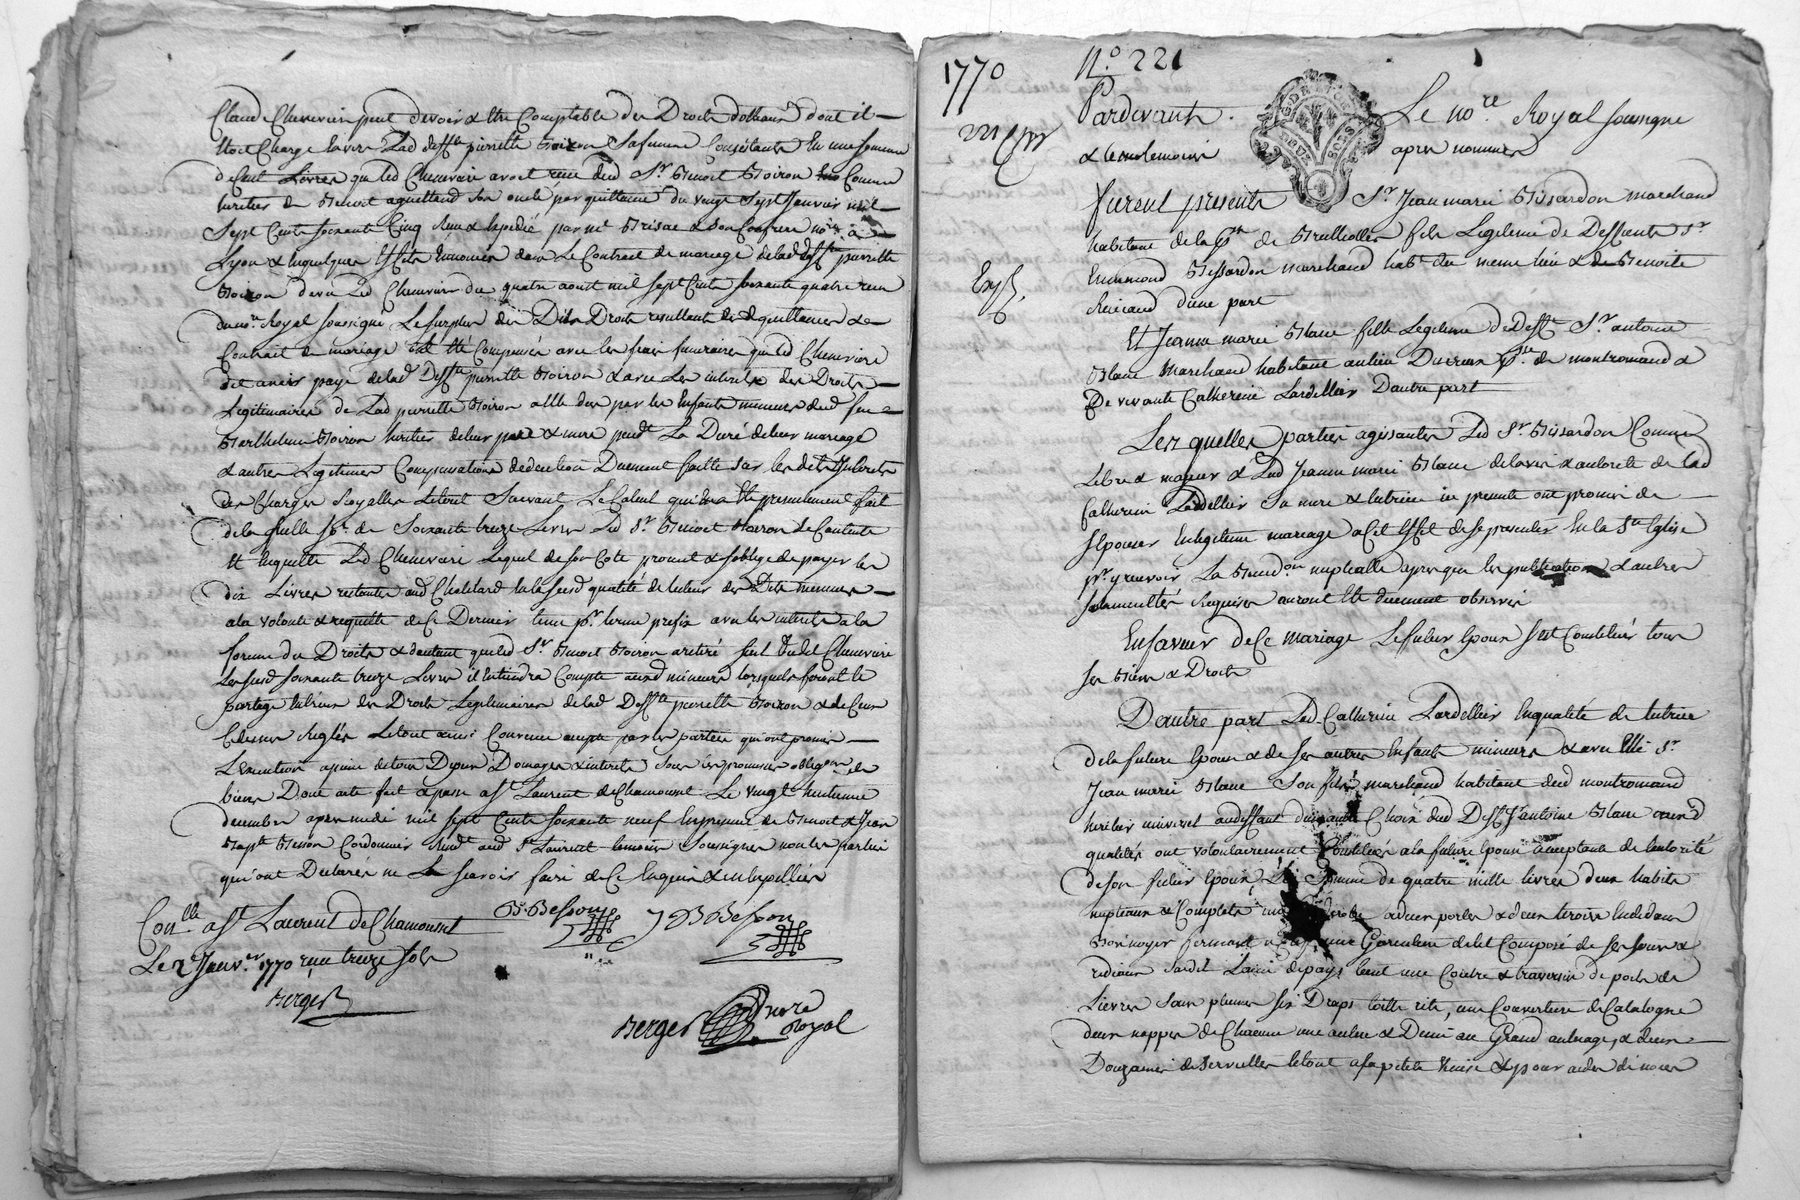 Claude Chenevier peut devoir & être Comptable des Droits dotteaux dont il
étoit Chargé envers lad deffte pierrette Boiron Sa femme Consistants En une somme
de Cent Livres que led Chenevier avoit reçue dud Sr. Benoit Boiron Comme
heritier de Benoit son oncle par quittance du vingt Sept Janvier mil
Sept Cents soixante Cinq reçue & Expédié par me & son Confrere nore à
Lyon & En quelques Effets Enoncés dans Le Contrat de mariage de lad deffte pierrette
Boiron & dud Chenevier du quatre aoust mil Sept Cents soixante quatre reçu
du nore. Royal soussigné, Le surplus des Dits Droits resultants des d quittances &
Contrat de mariage Est été Compensés avec les frais funeraires que led Chenevier
dit avoir payé de lad Deffte pierrette Boiron & avec les interets des Droits
Legitimaires de Lad pierrette Boiron a elle dus par les Enfants mineurs dud feu
Barthelemi Boiron heritier de leur pere & mere pendt La Durée de leur mariage
& autres Legitimes Compensations deduction Duement faitte sur les dits Interets
des Charges Royalles Letout Suivant Le Calcul qui En a Eté presentement fait
de la quelle so. de Soixante treize Livres Led Sr Benoit Boiron Se Contente
Et En quitte Led Chenevier Lequel de son Coté promet & s'oblige de payer les
dix Livres restantes aud Chatelard En la susd qualité de tuteur des Dits mineurs
a la volonté & requette de Ce Dernier tenue pr. terme prefix avec les interets a la
forme du Droits & d'autant que led Sr. Benoit Boiron a retiré seul dudt Chenevier
Les susd soixante treize Livres il En tiendra Compte auxd mineurs lorsqu'ils feront le
partage Entr'eux des Droits Legitimaires de lad Deffte pierrette Boiron & de Ceux
Ledessus Reglés Letout ainsi Convenu accepté par les parties qui ont promis
L'execution a peine de tous Depens Domages & interets sous les promesses obligaon. de
biens Dont acte fait & passé a St. Laurent de Chamousset Le vingt huitieme
decembre apres midi mil sept Cents soixante neuf En presence de Benoit & Jean
Bapte Besson Cordonnier residt. aud St Laurent temoins Soussignés non les parties
qui ont Declarés ne Le scavoir faire de Ce Enquis & interpellées
Conllé. a St. Laurent de Chamousset
Le 2e Janver. 1770 reçu treize sols
Berger
B. Besson
J B Besson
Berger nore Royal
1770
N.° 221
Pardevant Le nore. Royal soussigné
& les temoins apres nommés
Furent presents Sr Jean marie Bissardon marchand
habitant de la psse. de Brullioles fils Legitime de Deffunts Sr
Ennemond Bissardon marchand habt. du meme lieu & de Benoite
d'une part
Exp.
Et Jeanne marie Blanc fille Legitime de Defft. Sr. antoine
Blanc marchand habitant au lieu psse. de montromand &
De vivante Catherine Lardellier D'autre part
Lesquelles parties agissantes Led Sr. Bissardon Comme
Libre & majeur & Lad Jeanne marie Blanc de l'avis & autorité de lad
Catherine Lardellier sa mere & tutrice ici presente ont promis de
s'Epouser En legitime mariage a Cet Effet de se presenter En la Ste Eglise
pr. y recevoir La Bened.on nuptialle apres que les publications & autres
formalités Requises auront Eté duement observés
En faveur de Ce mariage Le futur Epoux s'est Constitués tous
ses Biens & Droits
D'autre part Lad Catherine Lardellier En qualité de tutrice
de la future Epouse & de ses autres Enfants mineurs & avec Elle Sr.
Jean marie Blanc Son fils marchand habitant dud montromand
heritier universel dud Defft. Sr antoine Blanc auxd
qualités ont volontairement Constitués a la future Epouse acceptante de l'autorité
de son futur Epoux La Somme de quatre mille livres deux habits
nuptiaux & Complets une garderobe a deux portes & deux tiroirs En dedans
Bois noyer fermant a clef, une Garniture de lit Composé de ses tours &
rideaux Laine de pays, une Coitre & traversin de poids de
Livres Sans plumes six Draps toille rite, une Couverture de Catalogne
deux nappes de Chacune une aulne & Demi au Grand aulnage, & deux
Douzaines de serviettes letout a la petite Venise & pour aider de noces